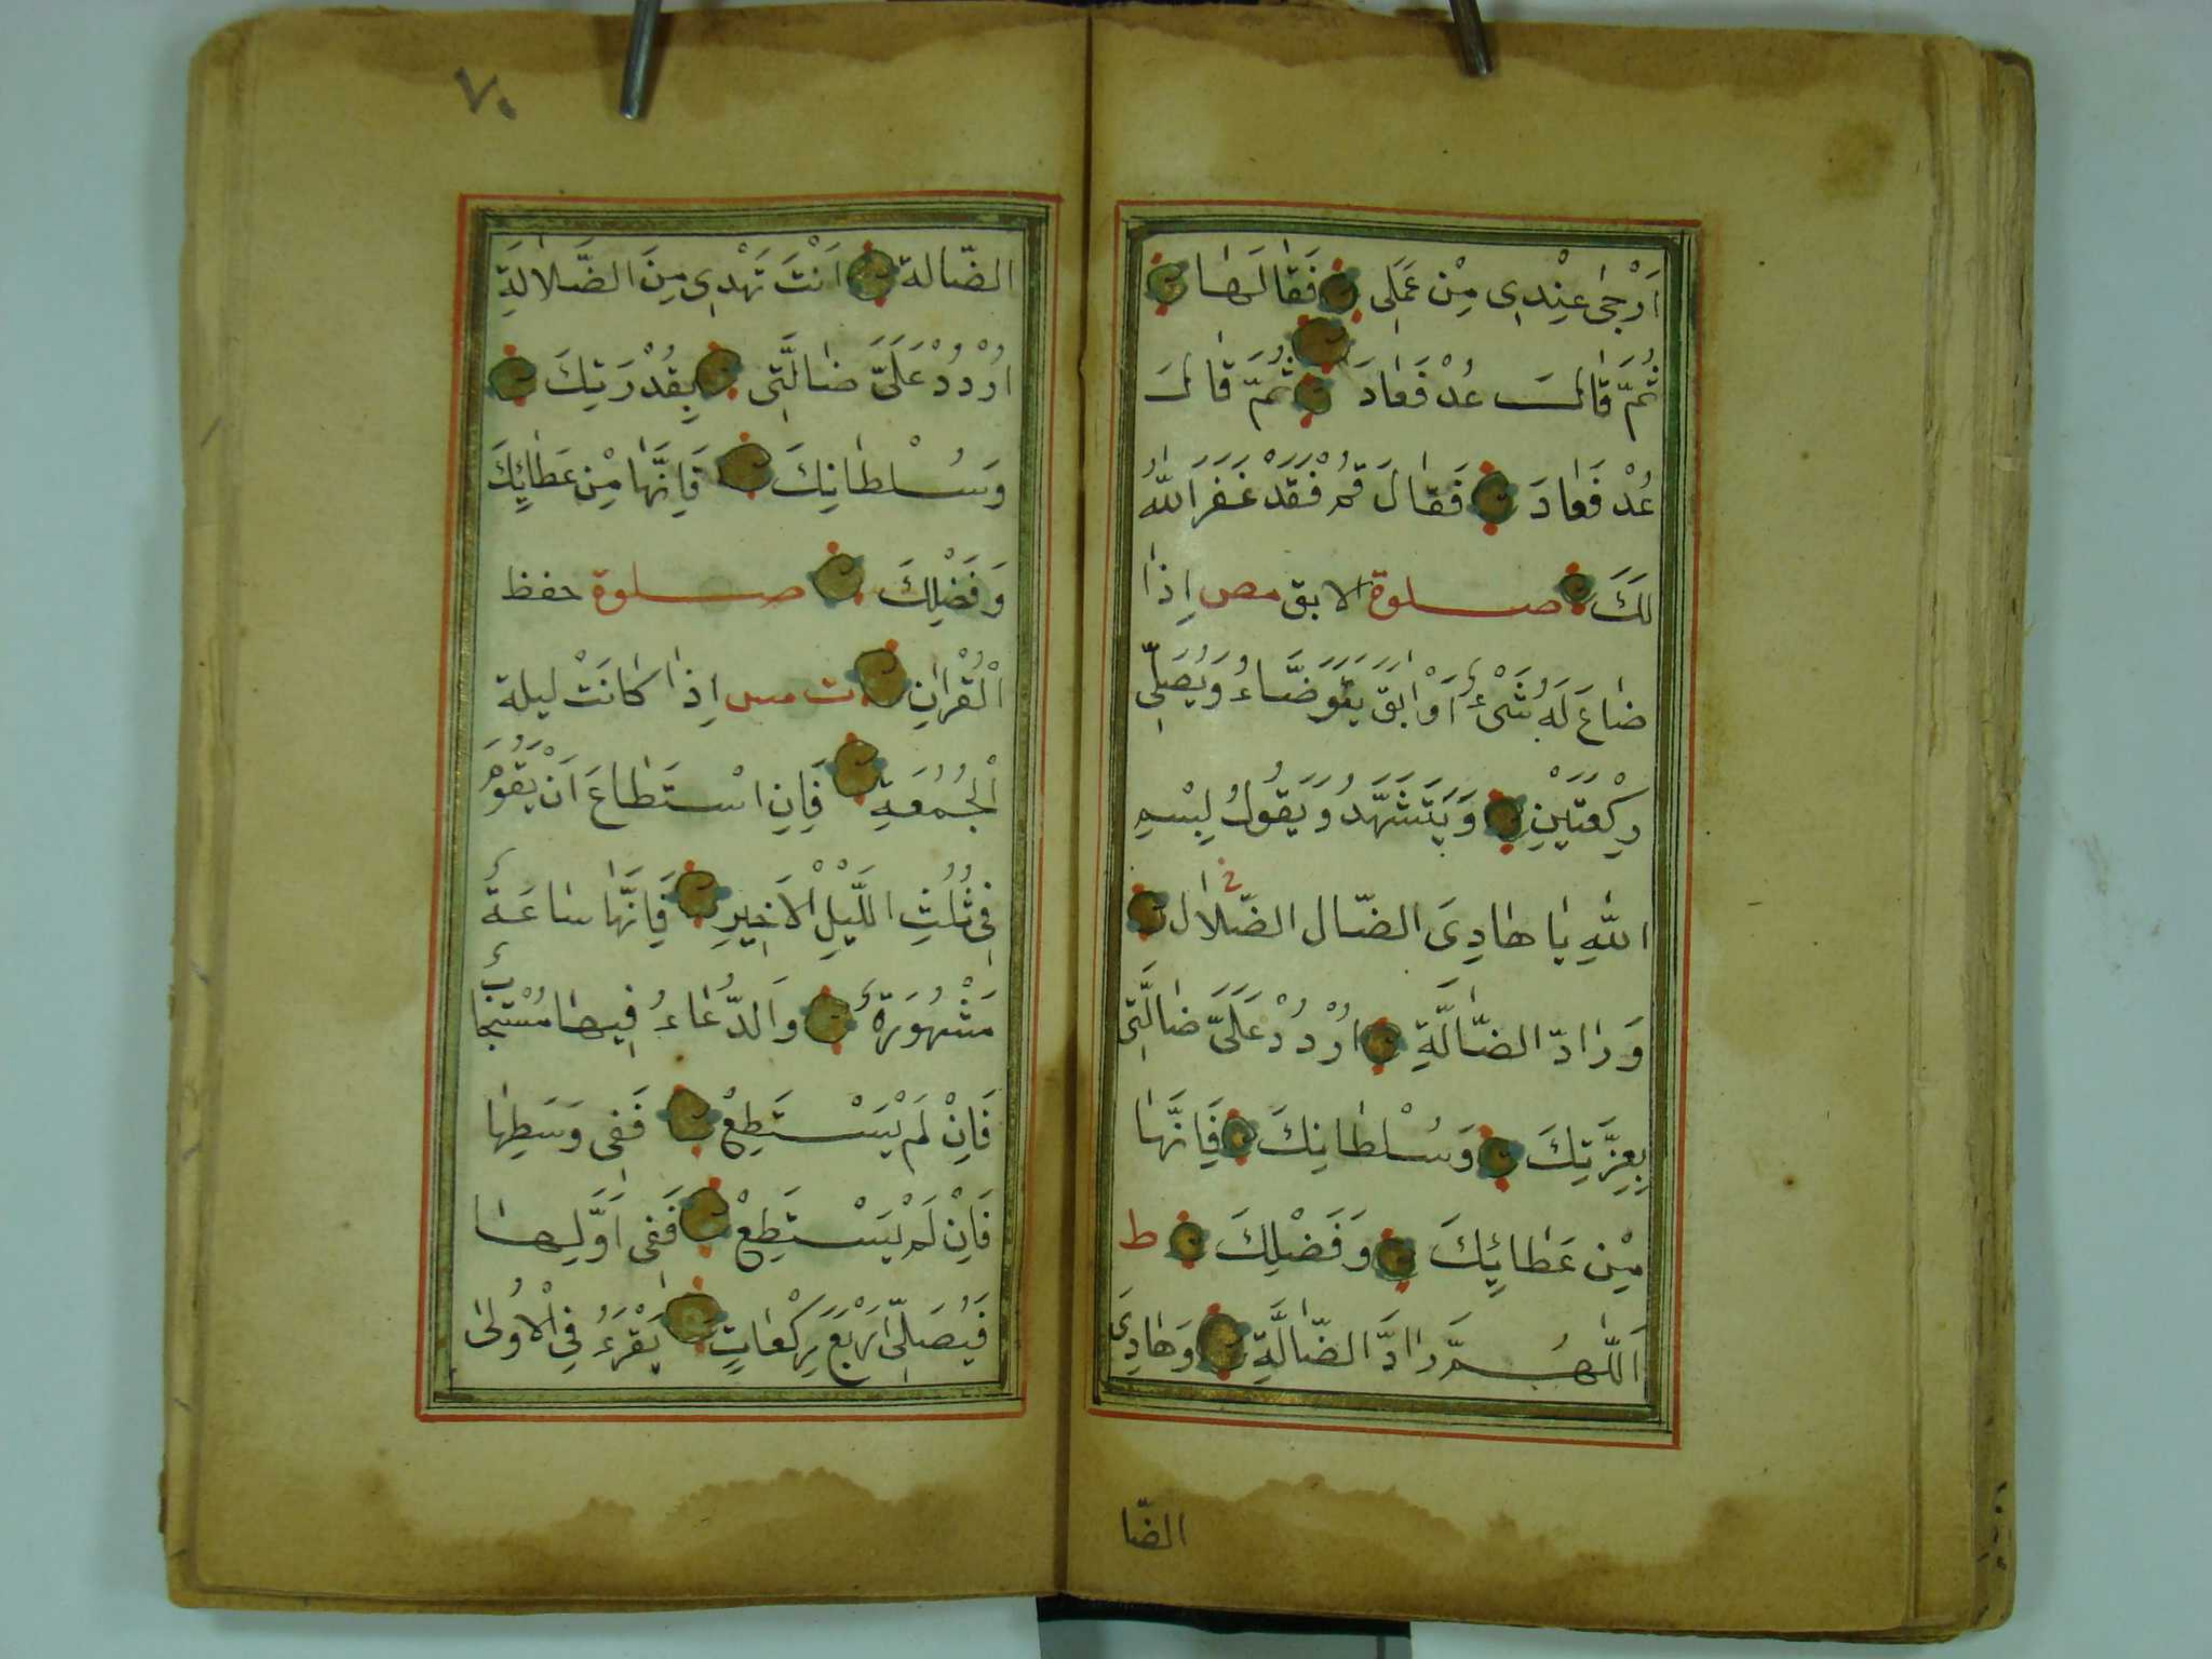 اَرْجٰى عِنْدِى مِنْ عَمَلِى فَقٰالَهٰا
ثُمَّ قٰالَ عُدْ فَعٰادَ ثُمَّ قٰالَ
عُدْ فَعٰادَ فَقٰالَ قُمْ فَقَدْ غَفَرَ اللّٰهُ
لَكَ صلوة الابق مص اِذٰا
ضٰاعَ لَهُ شَىْءٌ اَوْ اٰبَقَ يَتَوَضَّاءُ وَيُصَلِّى
رَكْعَتَيْنِ وَيَتَشَهَّدُ وَيَقُولُ بِسْمِ
اللّٰهِ يٰا هٰادِىَ الضّال الضّلال
وَرٰادَّ الضّٰالَّةِ اُرْدُدْ عَلَىَّ ضٰالَّتِى
بِعِزَّتِكَ وَسُلْطٰانِكَ فَاِنَّهٰا
مِنْ عَطٰائِكَ وَفَضْلِكَ ط
اَللّٰهُمَّ رٰادَّ الضّٰالَّةِ وَهٰادِىَ
الضّا
٧٠
الضّالة اَنْتَ تَهْدِى مِنَ الضَّلالَةِ
اُرْدُدْ عَلَىَّ ضٰالَّتِى بِقُدْرَتِكَ
وَسُلْطٰانِكَ فَاِنَّهٰا مِنْ عَطٰائِكَ
وَفَضْلِكَ صلوة حفظ
الْقُرْاٰنِ ت مس اِذٰا كٰانَتْ ليلة
الْجُمُعَةِ فَاِنِ اسْتَطٰاعَ اَنْ يَقُومَ
فِى ثُلُثِ اللَّيْلِ الْاَخِيرِ فَاِنَّهٰا سٰاعَةٌ
مَشْهُورَةٌ وَالدُّعٰاءُ فِيهٰا مُسْتَجٰابٌ
فَاِنْ لَمْ يَسْتَطِعْ فَفِى وَسَطِهٰا
فَاِنْ لَمْ يَسْتَطِعْ فَفِى اَوَّلِهٰا
فَيُصَلِّى اَرْبَعَ رَكْعٰاتٍ يَقْرَءُ فِى الْاُولىٰ